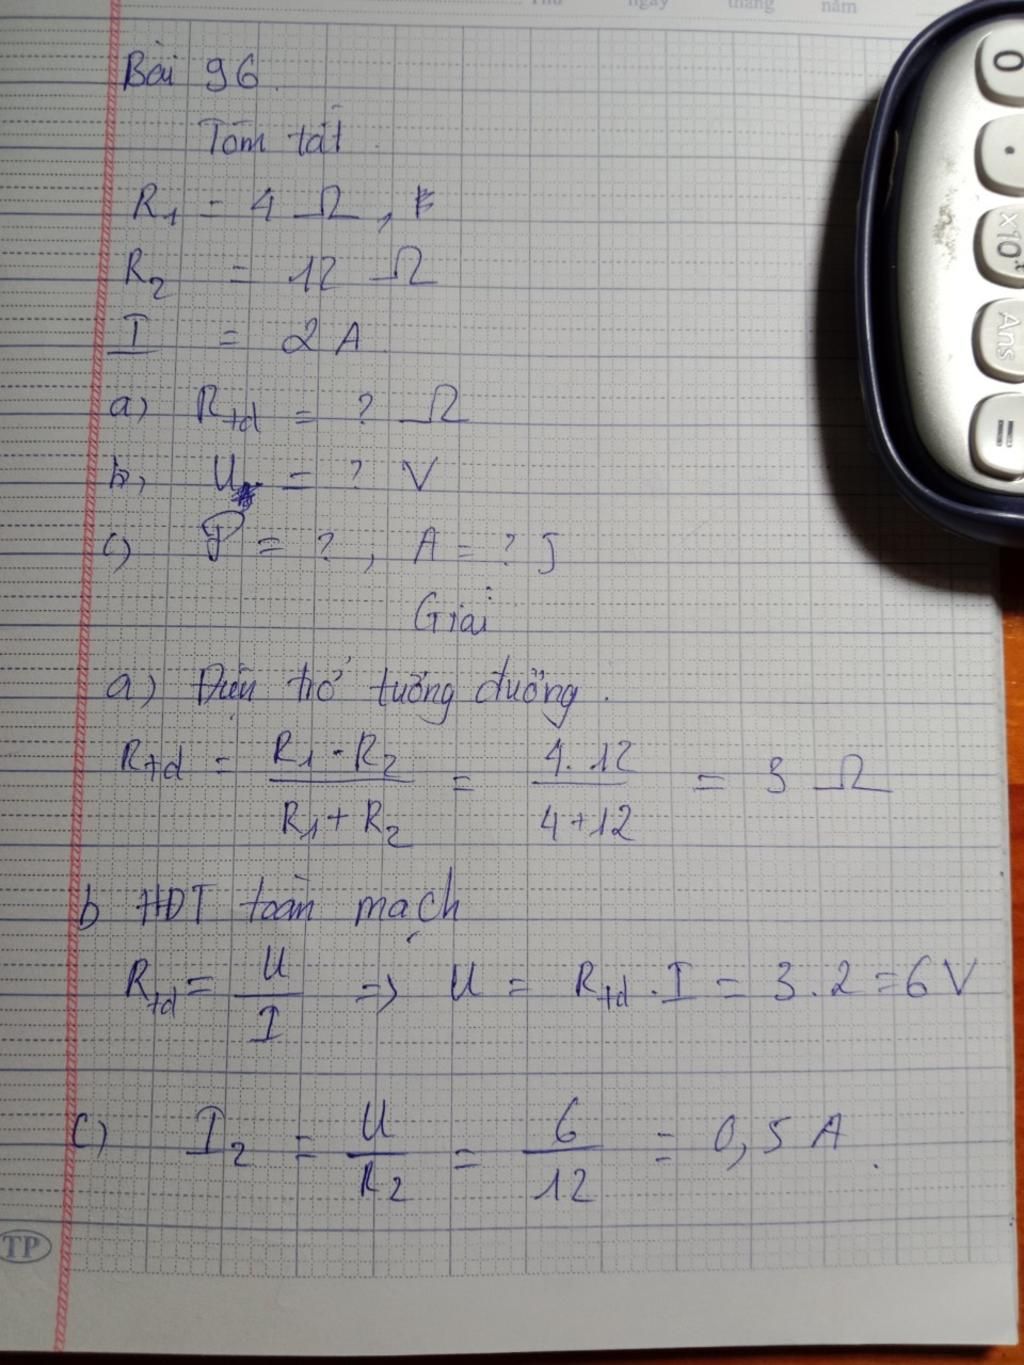 Thứ ngày tháng năm
Bài 96.
Tóm tắt.
R₁ = 4 Ω,
R₂ = 12 Ω
I = 2 A
a) Rtđ = ? Ω
b, U = ? V
c) P = ?, A = ? J
Giải
a) Điện trở tương đương.
Rtđ = R₁ . R₂ / R₁ + R₂ = 4 . 12 / 4 + 12 = 3 Ω
b HĐT toàn mạch
Rtđ = U / I => U = Rtđ . I = 3 . 2 = 6 V
c) I₂ = U / R₂ = 6 / 12 = 0,5 A.
TP
0
.
x10ˣ
Ans
=